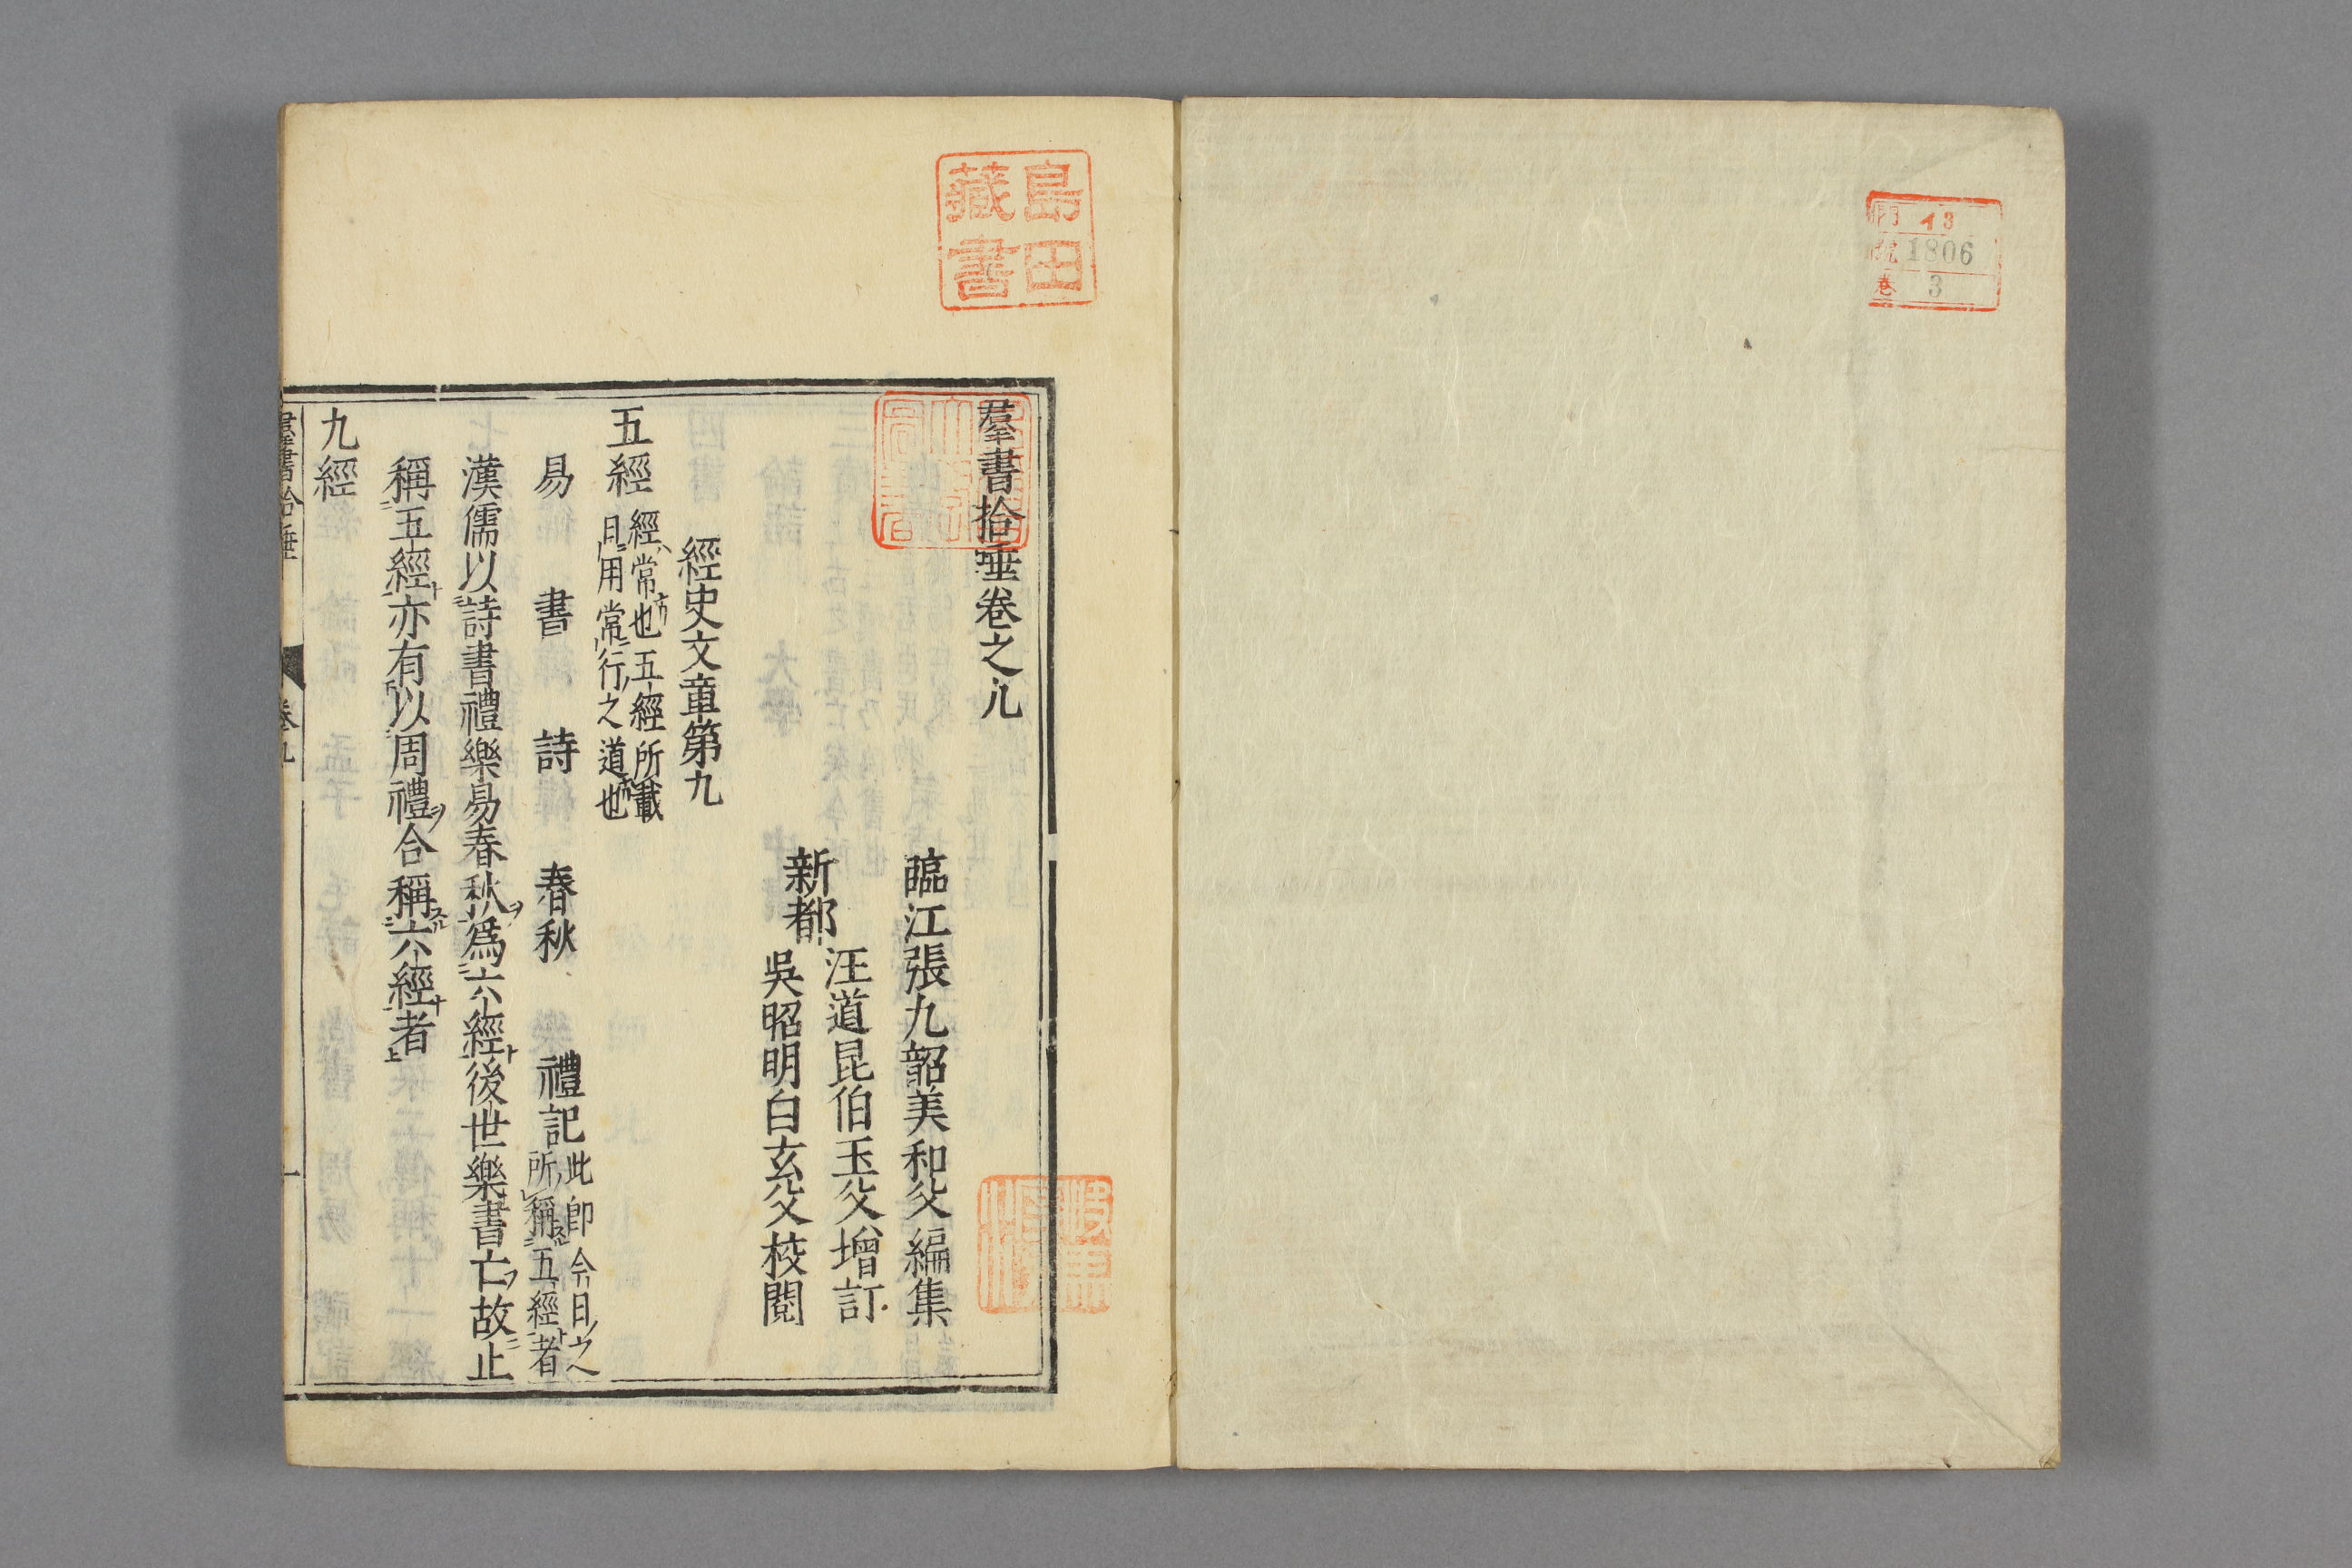 門 13
號 1806
卷 3
島田
藏書
羣書拾唾卷之九
臨江張九韶美和父編集
新都
汪道昆伯玉父增訂
吳昭明白玄父校閱
經史文章第九
五經
經常也五經所載
日用常行之道也
易 書 詩 春秋 禮記
此即今日之
所稱五經者
漢儒以詩書禮樂易春秋爲六經後世樂書亡故止
稱五經亦有以周禮合稱六經者
九經
羣書拾唾
卷九
一